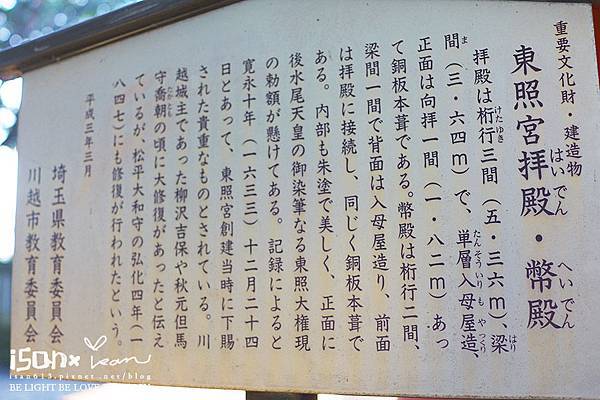 重要文化財・建造物
東照宮拝殿・幣殿
はいでん
へいでん
拝殿は桁行三間（五・三六ｍ）、梁
けたゆき
はり
間（三・六四ｍ）で、単層入母屋造、
ま
たんそういりもやづくり
正面は向拝一間（一・八二ｍ）あっ
て銅板本葺である。幣殿は桁行二間、
梁間一間で背面は入母屋造り、前面
は拝殿に接続し、同じく銅板本葺で
ある。内部も朱塗で美しく、正面に
後水尾天皇の御染筆なる東照大権現
の勅額が懸けてある。記録によると
寛永十年（一六三三）十二月二十四
日とあって、東照宮創建当時に下賜
された貴重なものとされている。川
越城主であった柳沢吉保や秋元但馬
守喬朝の頃に大修復があったと伝え
たかとも
ているが、松平大和守の弘化四年（一
八四七）にも修復が行われたという。
平成三年三月
埼玉県教育委員会
川越市教育委員会
isan×
isan613.pixnet.net/blog
BE LIGHT BE LOVE